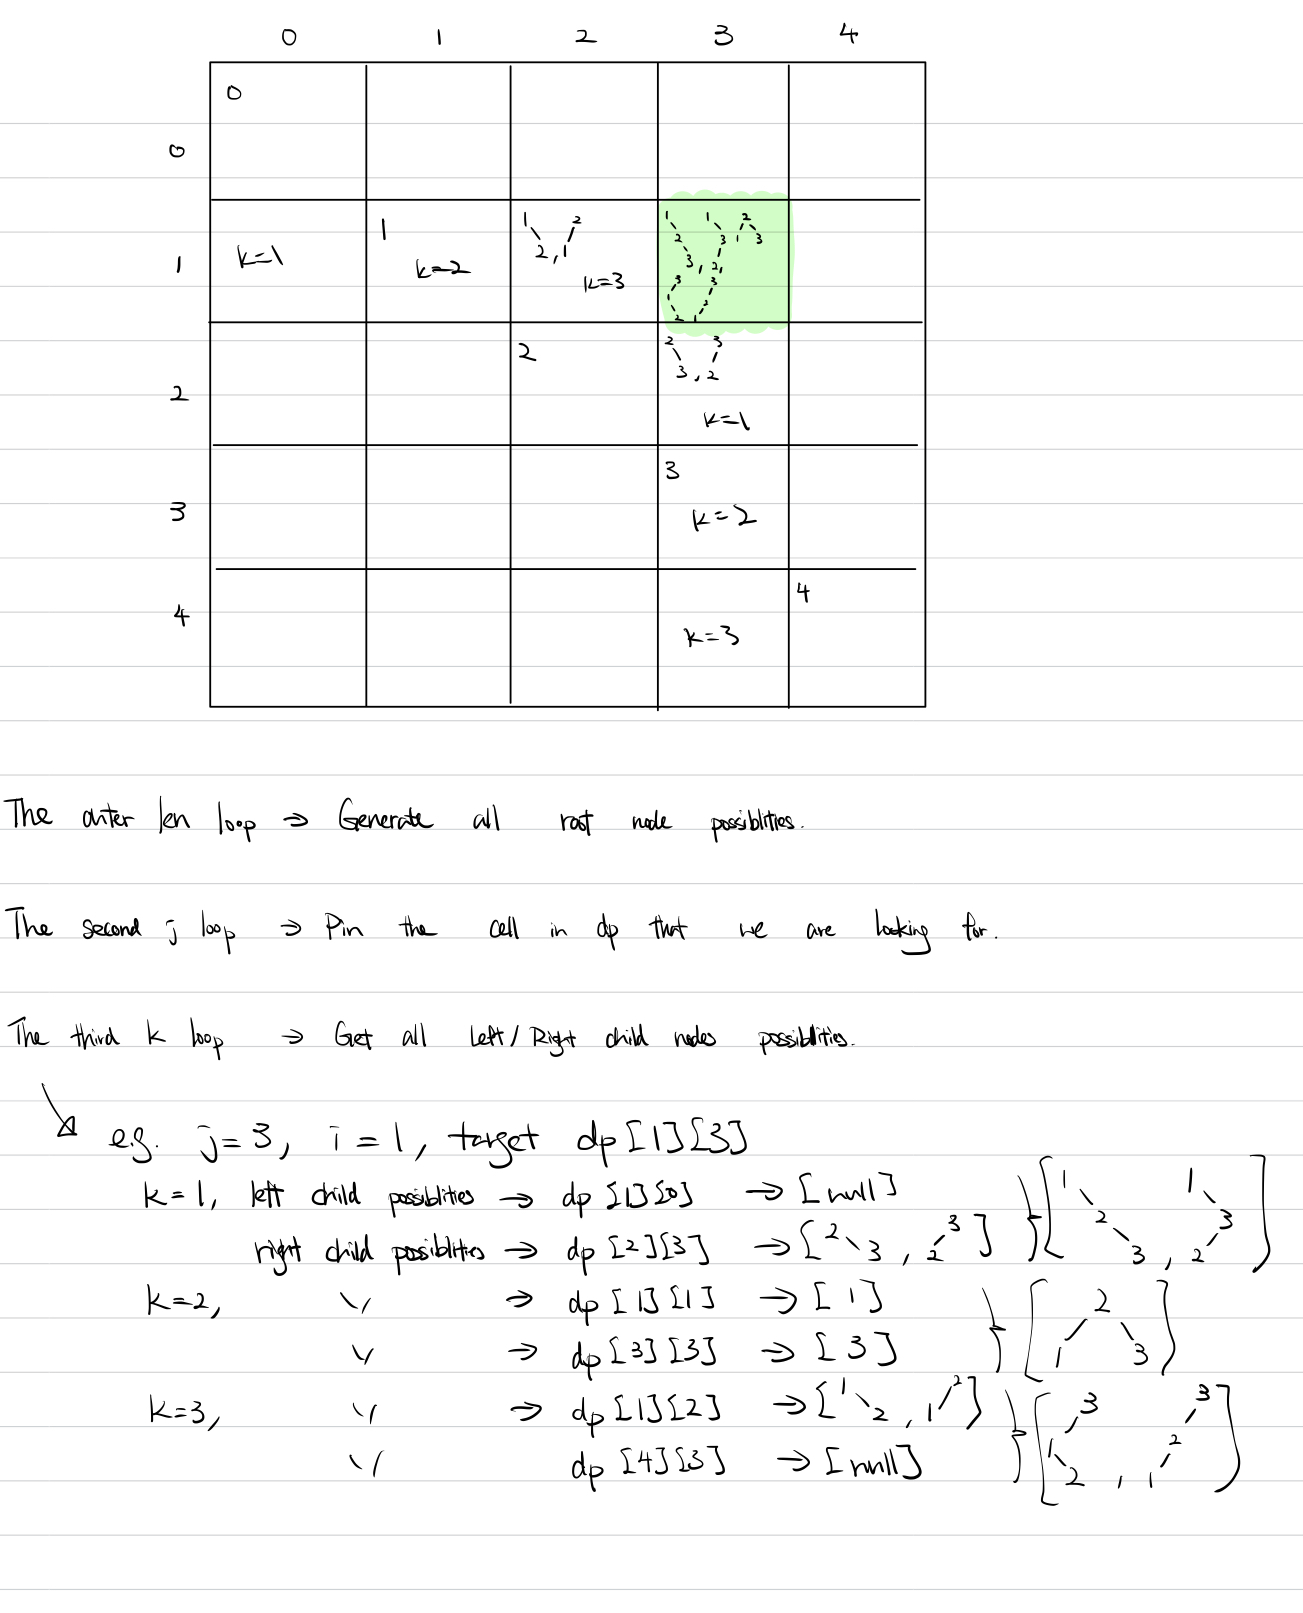 0 1 2 3 4
0
0
1 k=1 1 k=2 1 2 , 2 1 k=3 1 2 3 , 1 3 2 , 2 1 3
3 1 2 , 3 2 1
2 2 2 3 , 3 2
k=1
3 3
k=2
4 4
k=3
The outer len loop → Generate all root node possiblities.
The second j loop → Pin the cell in dp that we are looking for.
The third k loop → Get all Left/Right child nodes possiblities.
e.g. j=3, i=1, target dp[1][3]
k=1, left child possiblities → dp[1][0] → [null] 1 2 3 , 1 3 2
right child possiblities → dp[2][3] → [2 3 , 3 2]
k=2, 〃 → dp[1][1] → [1] [2 1 3]
〃 → dp[3][3] → [3]
k=3, 〃 → dp[1][2] → [1 2 , 2 1] [3 1 2 , 3 2 1]
〃 dp[4][3] → [null]